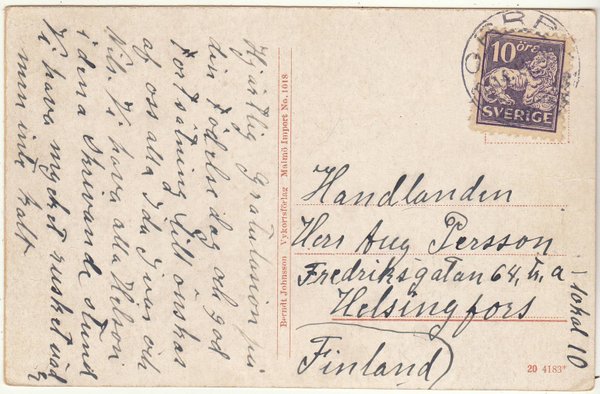 Hjärtlig Gratulasion på
din Födelse dag och god
Fortsätning till önskas
af oss alla Ida Ivar och
Nils. Vi hava alla Helsan
i dena Skrivande stund
Vi hava mycket rusket väd
men inte kalt
Berndt Johnsson Vykortsförlag Malmö Import No. 1018
10 ÖRE
SVERIGE
Handlanden
Herr Aug Persson
Fredriksgatan 64, a
Helsingfors
Finland
10
20 4183*